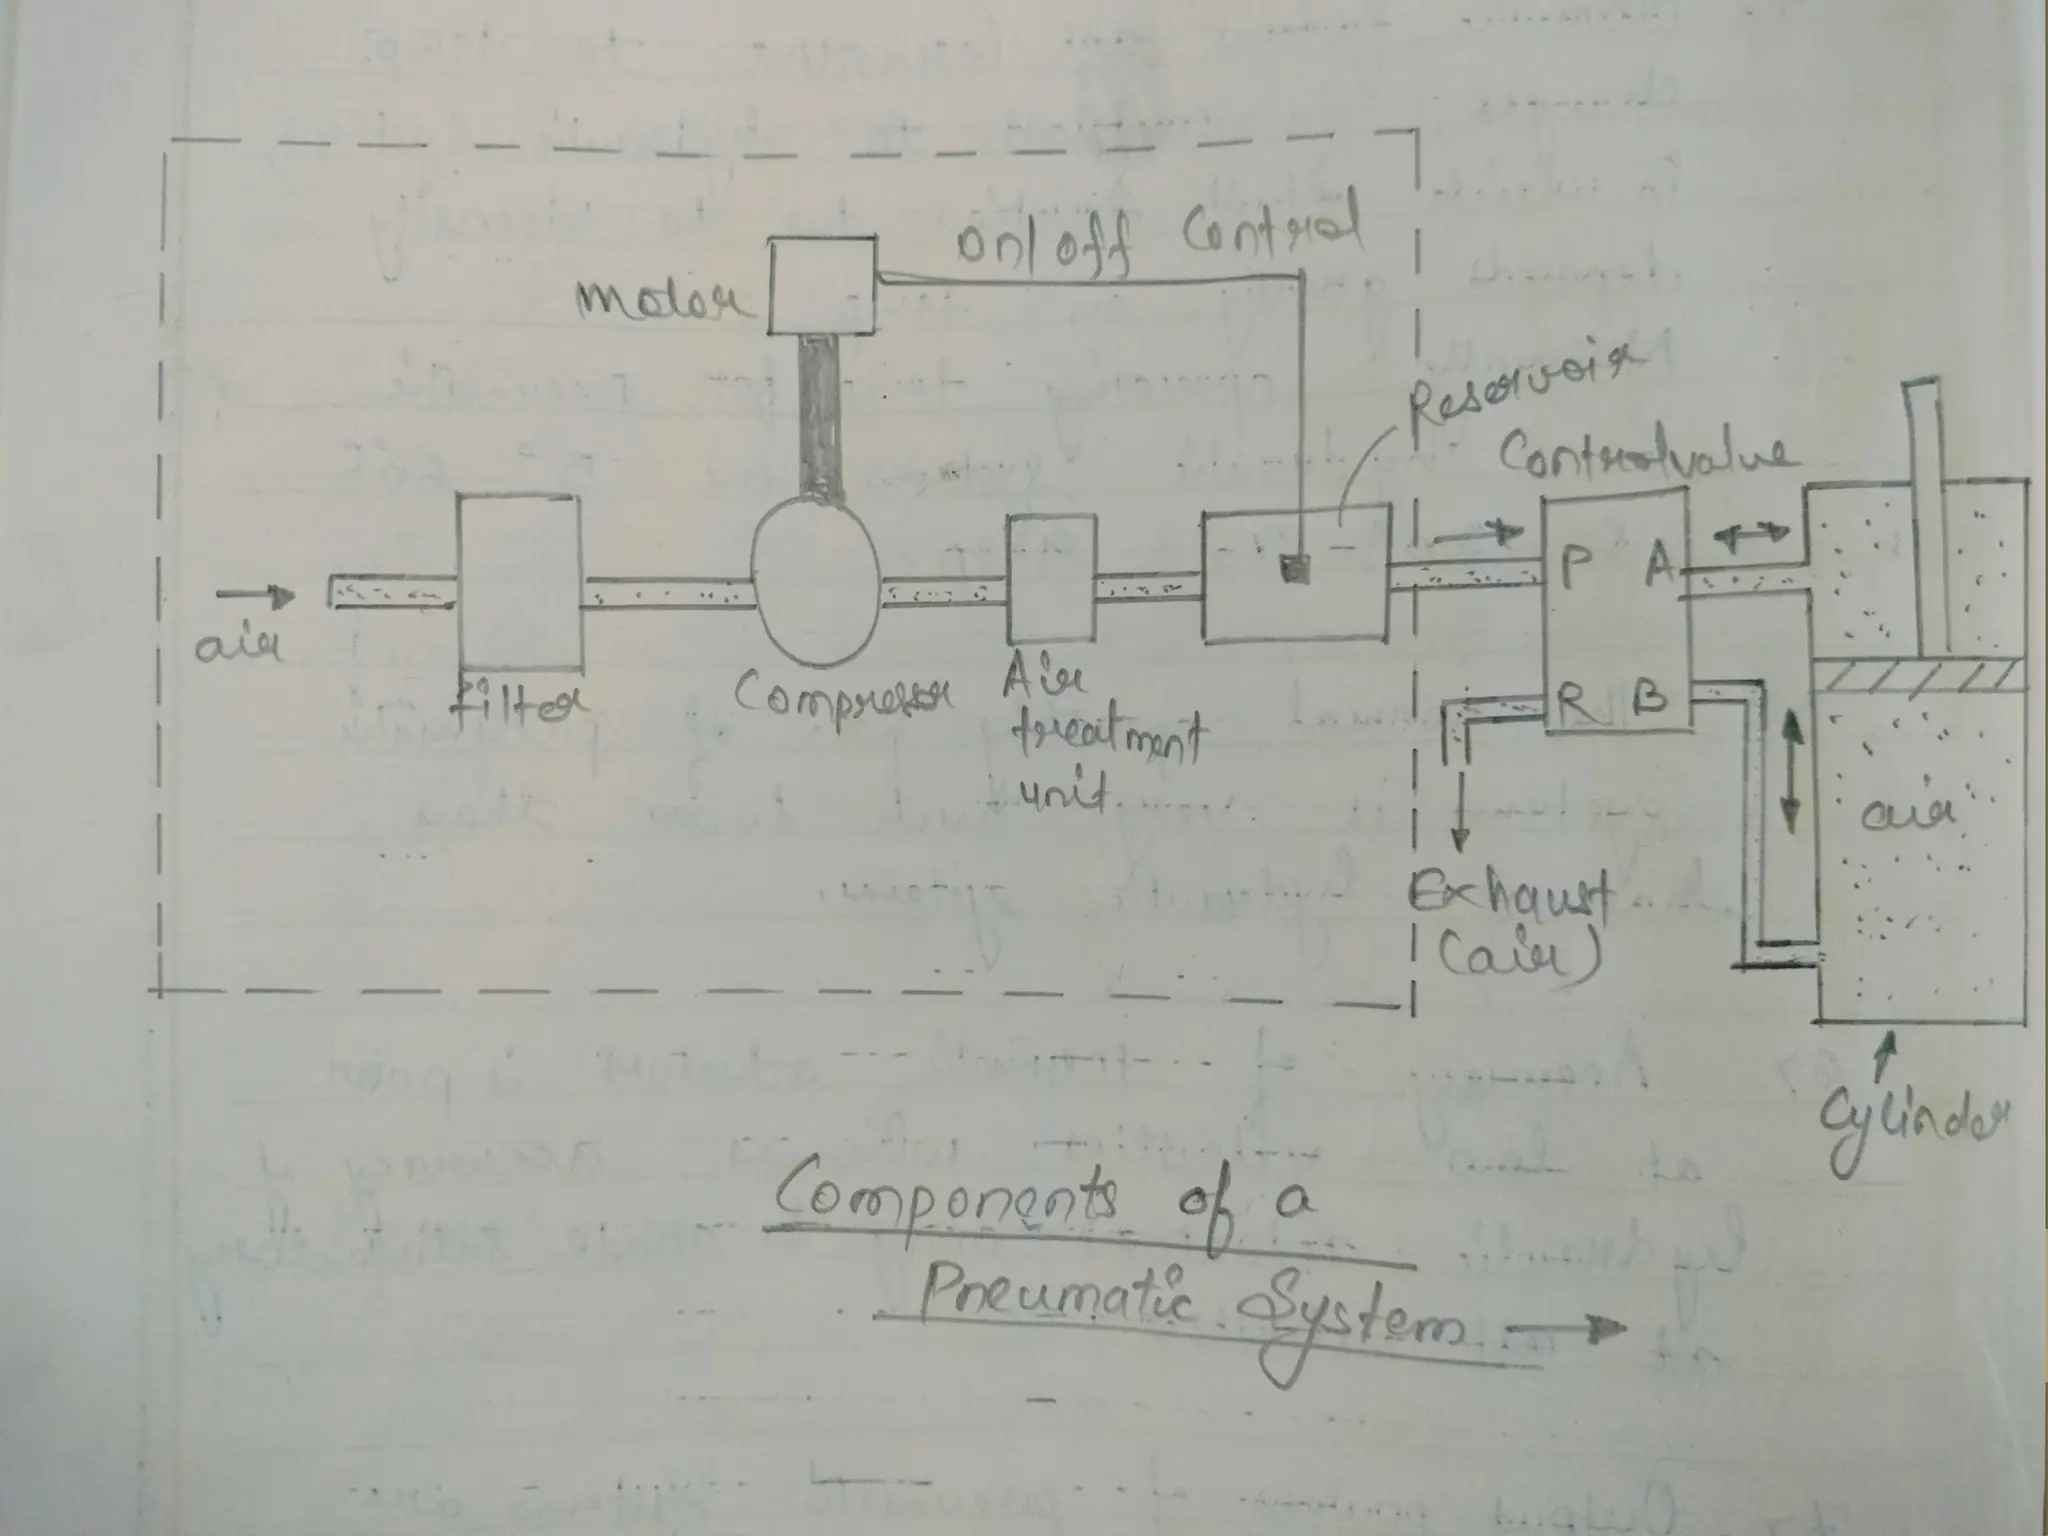 on/off Control
Motor
Reservoir
Controlvalve
P A
air
R B
Filter
Compressor
Air
treatment
unit
air
Exhaust
(air)
Cylinder
Components of a
Pneumatic System